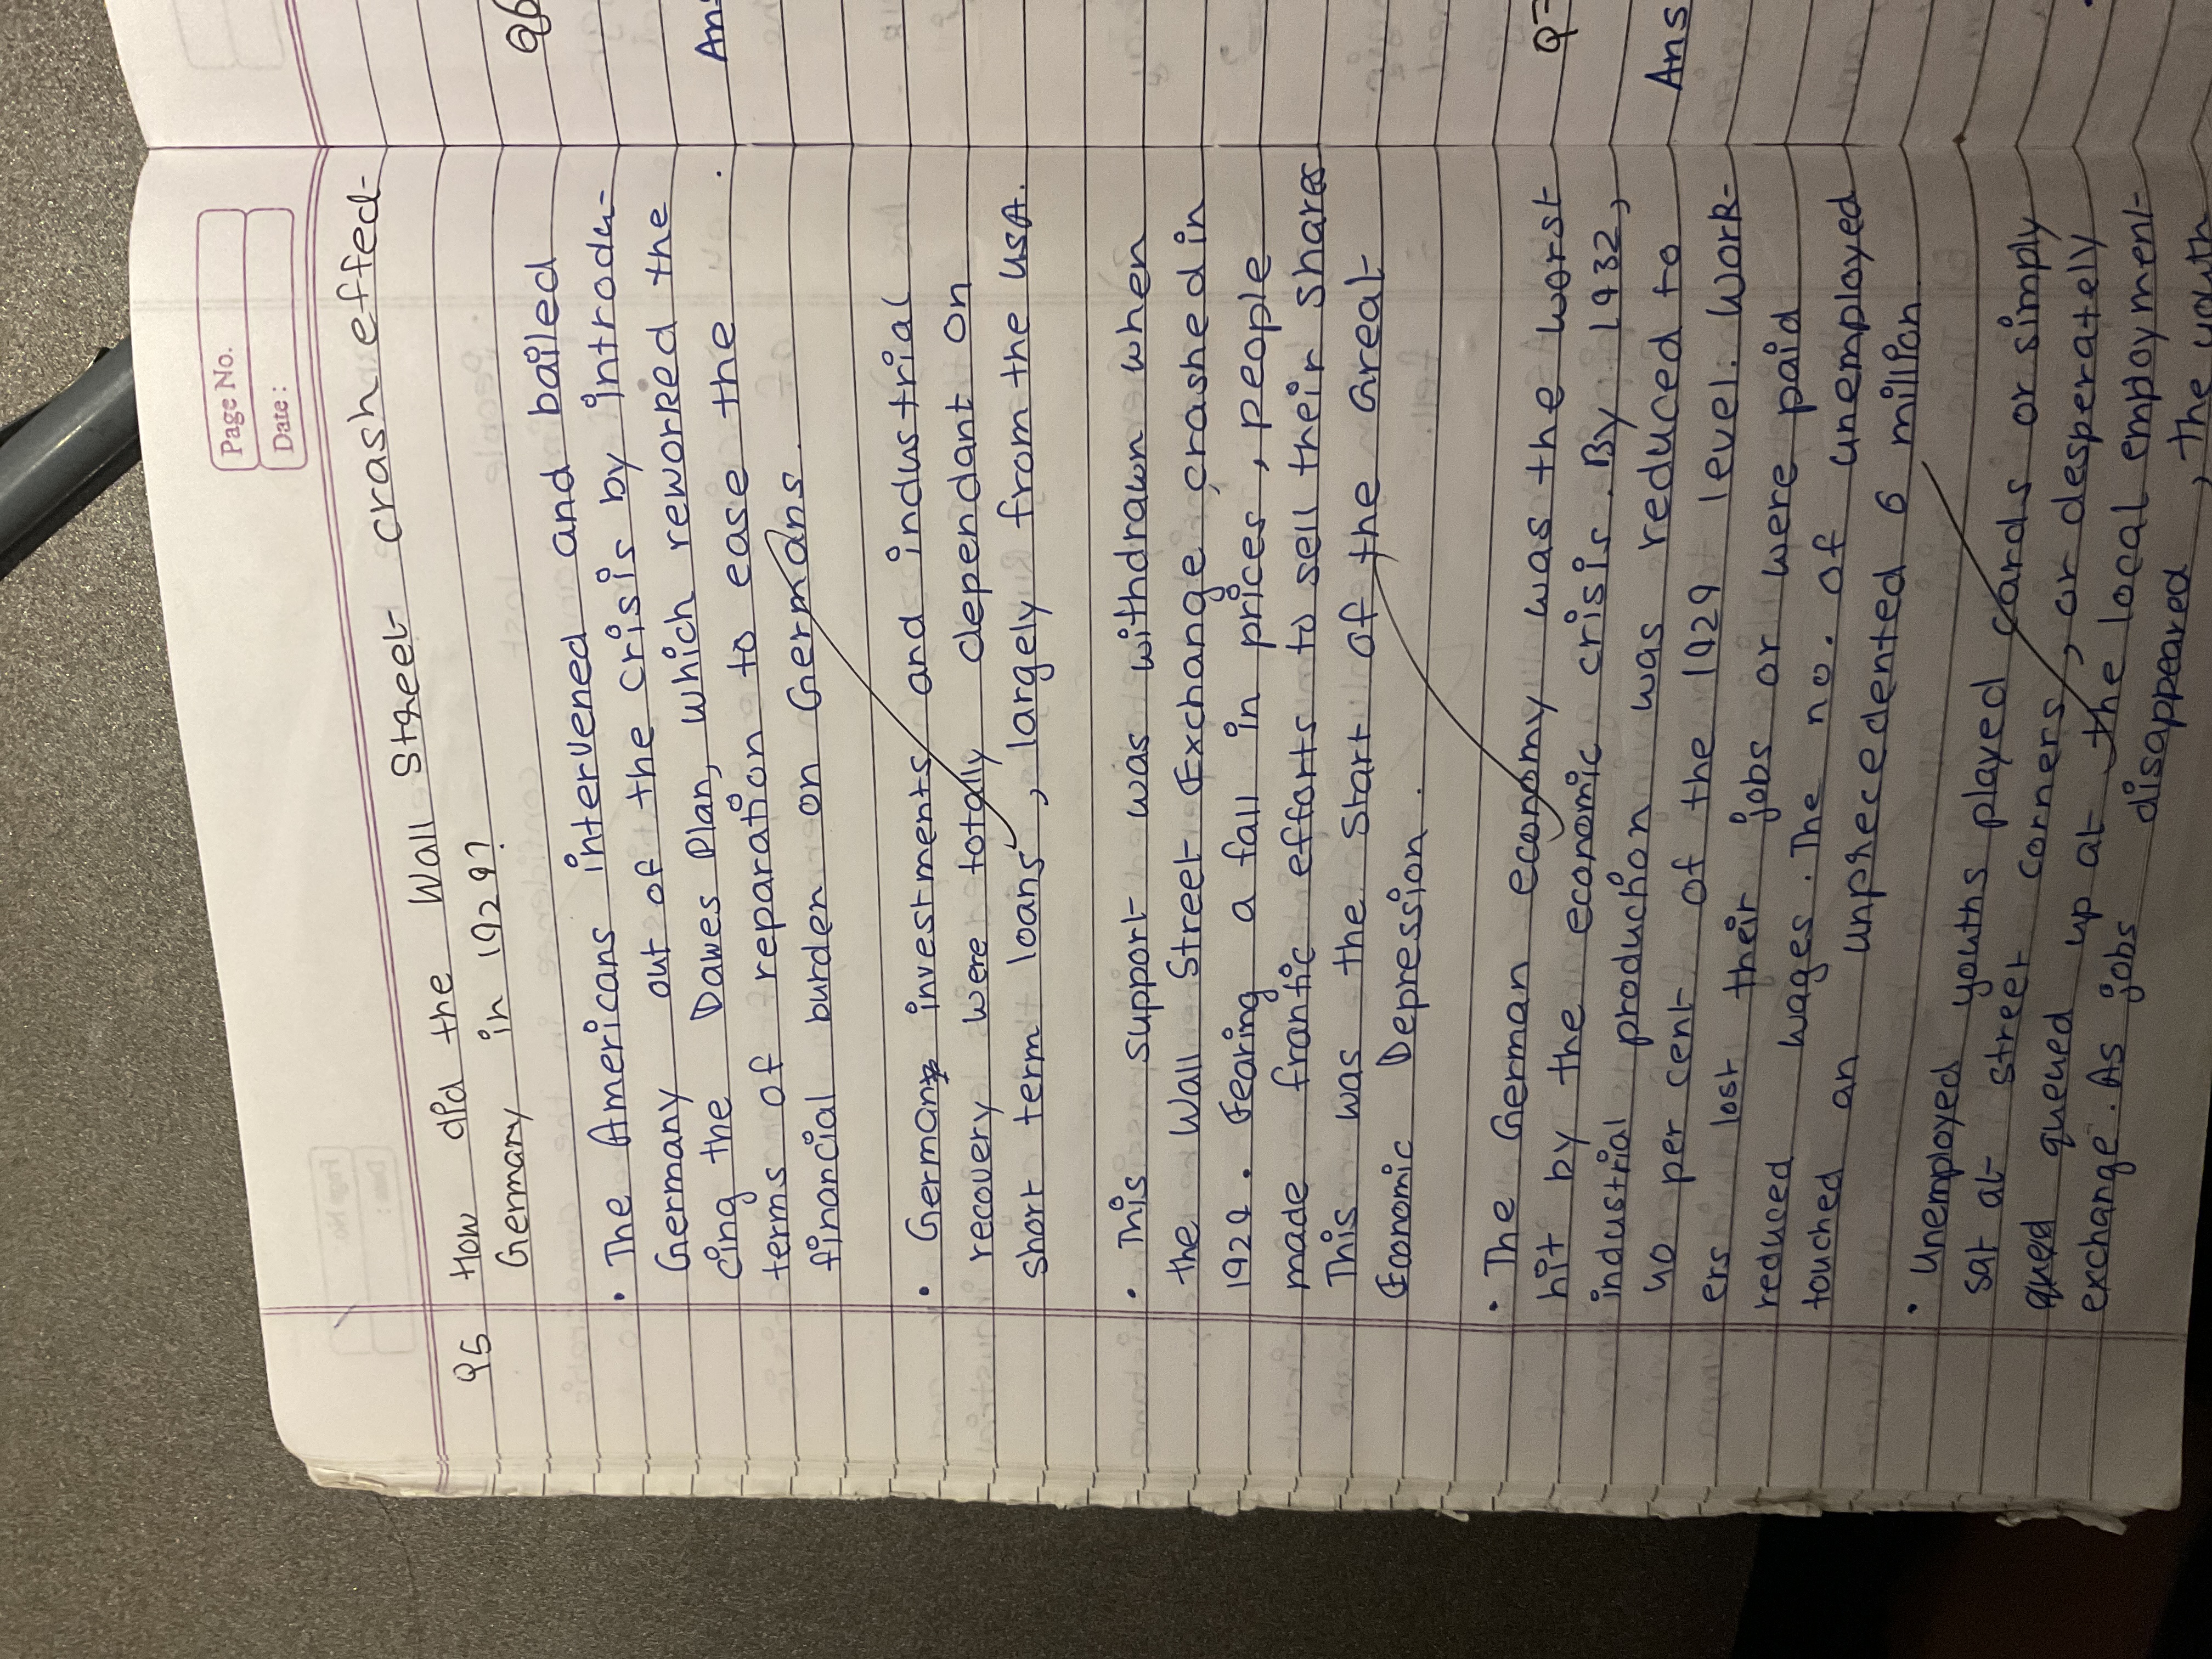 Page No.
Date:
Q5 How did the Wall Street crash effed
Germany in 1929?
• The Americans intervened and bailed
Germany out of the crisis by introdu-
cing the Dawes Plan, which reworked the
terms of reparation to ease the
financial burden on Germans.
• German investments and industrial
recovery were totally dependant on
short term loans, largely from the USA.
• This support was withdrawn when
the Wall Street Exchange crashed in
1929. Fearing a fall in prices, people
made frantic efforts to sell their shares
This was the start of the Great
Economic Depression.
• The German economy was the worst
hit by the economic crisis. By 1932,
industrial production was reduced to
40 per cent of the 1929 level. Work-
ers lost their jobs or were paid
reduced wages. The no. of unemployed
touched an unprecedented 6 million
• Unemployed youths played cards or simply
sat at street corners, or desperately
queued up at the local employment
exchange. As jobs disappeared, the youth
Q6
Ans
Q7
Ans